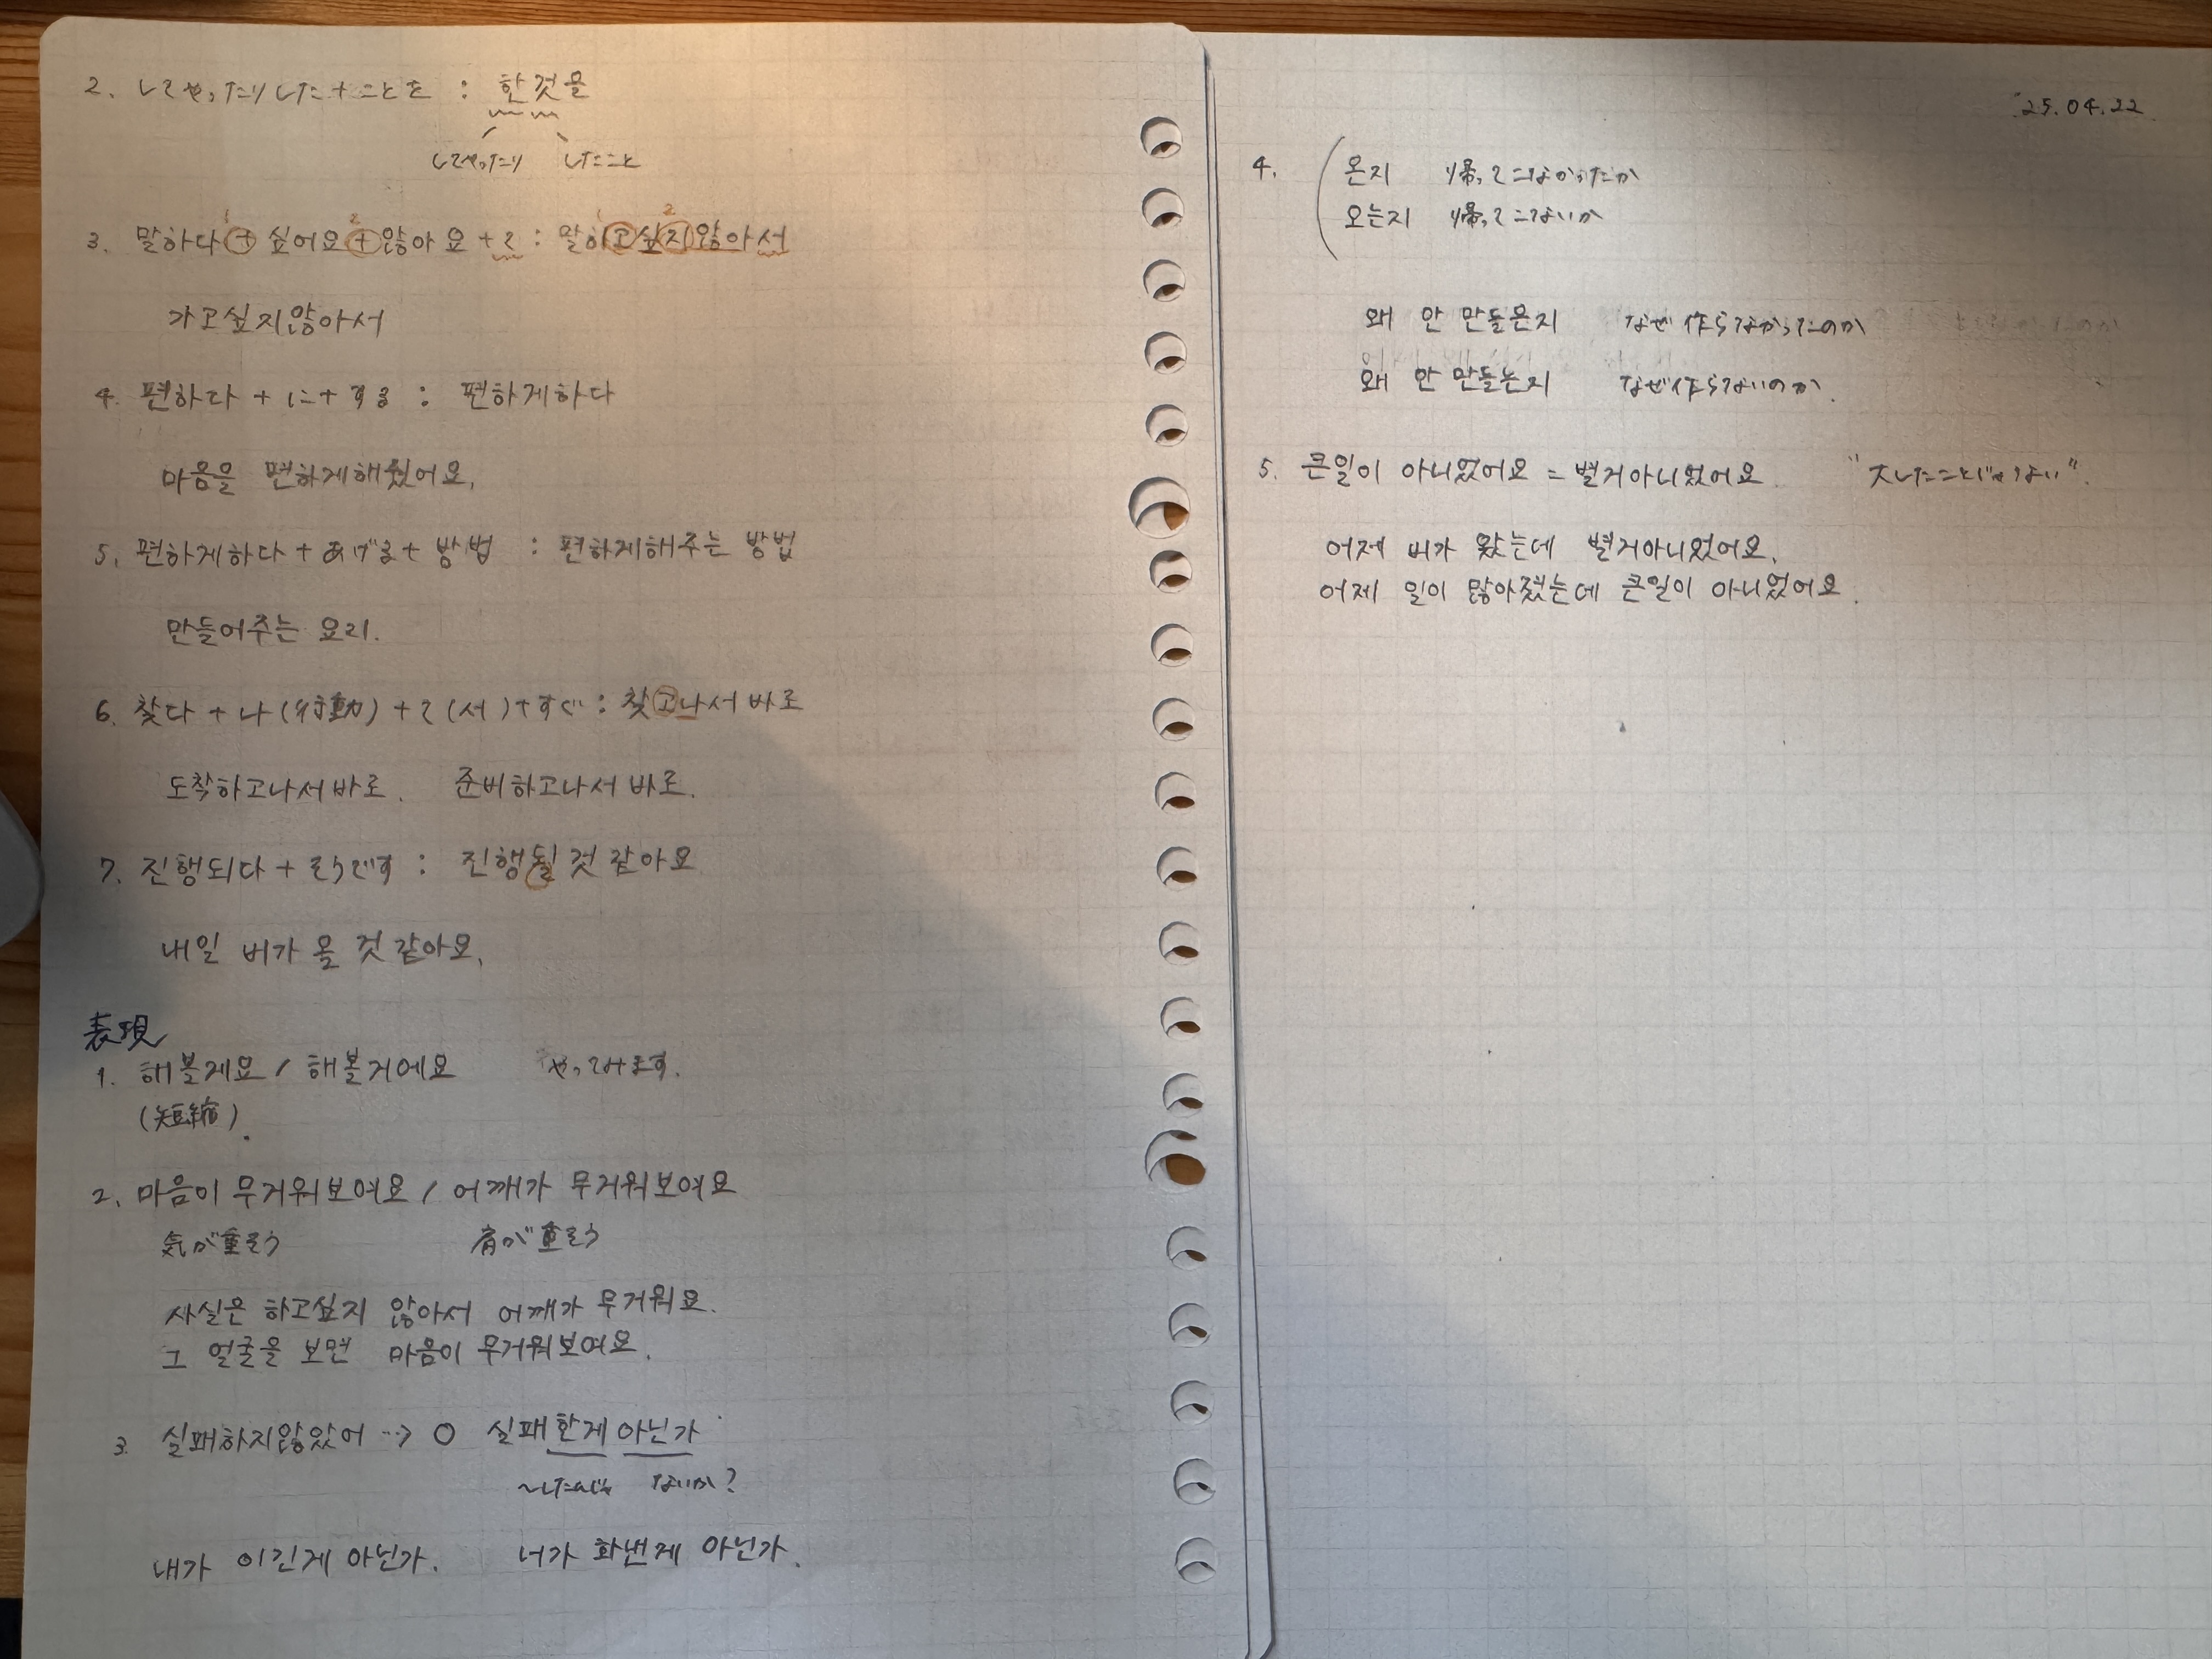 2. してやったりした + ことを : 한것을
してやったり したこと
3. 말하다 + 싶어요 + 않아요 + て : 말하고싶지않아서
가고싶지않아서
4. 편하다 + に + する : 편하게하다
마음을 편하게해줬어요.
5. 편하게하다 + あげる + 방법 : 편하게해주는 방법
만들어주는 요리.
6. 찾다 + 나(行動) + て(서) + すぐ : 찾고나서 바로
도착하고나서바로. 준비하고나서 바로.
7. 진행되다 + そうです : 진행될 것 같아요
내일 비가 올 것 같아요.
表現
1. 해볼게요 / 해볼거에요 やってみます.
(短縮).
2. 마음이 무거워보여요 / 어깨가 무거워보여요
気が重そう 肩が重そう
사실은 하고싶지 않아서 어깨가 무거워요.
그 얼굴을 보면 마음이 무거워보여요.
3. 실패하지않았어 …→ ○ 실패한게 아닌가
〜したのじゃ ないか?
내가 이긴게 아닌가. 너가 화낸게 아닌가.
'25.04.22
4. 온지 帰ってこなかったか
오는지 帰ってこないか
왜 안 만들은지 なぜ作らなかったのか
왜 안 만들는지 なぜ作らないのか.
5. 큰일이 아니었어요 = 별거아니었어요. "大したことじゃない".
어제 비가 왔는데 별거아니었어요.
어제 일이 많아졌는데 큰일이 아니었어요.